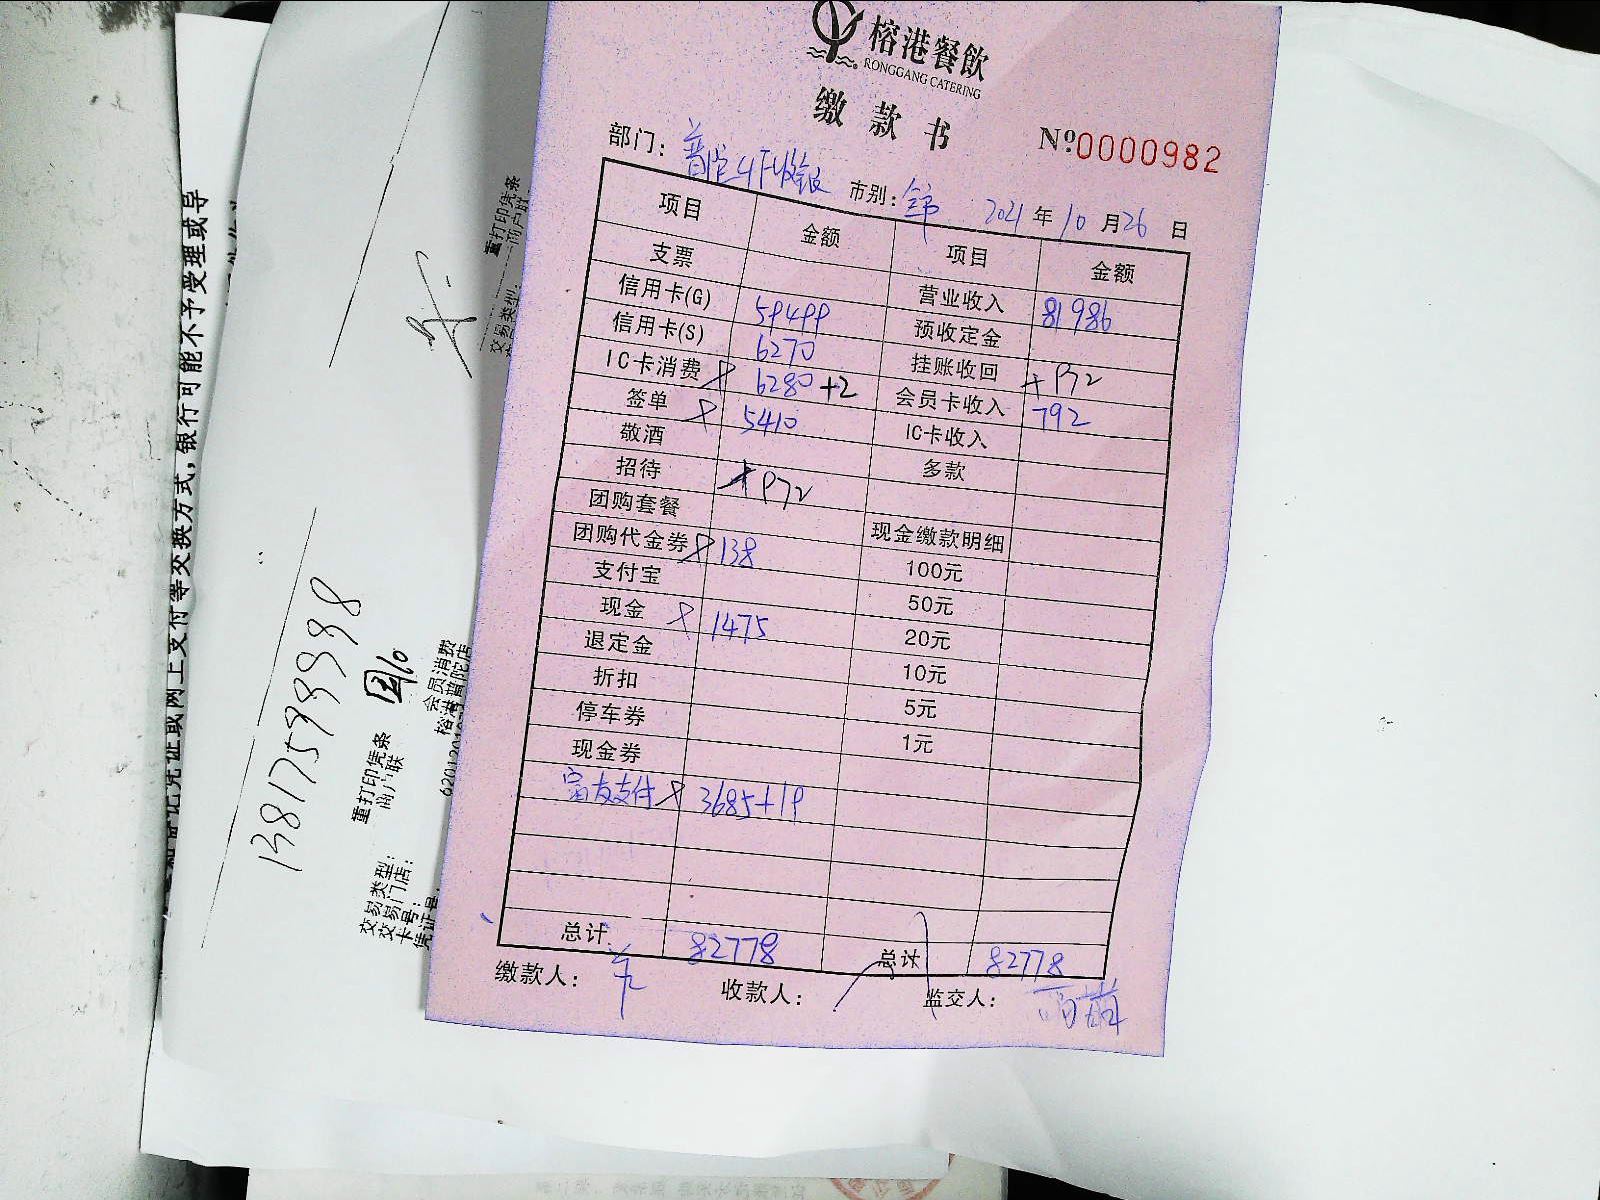 榕港餐飲
RONGGANG CATERING
缴款书
№0000982
部门：普陀4F收银 市别：全市 2021年10月26日
项目 金额 项目 金额
支票 营业收入 81986
信用卡(G) 59499 预收定金
信用卡(S) 6270 挂账收回 +972
IC卡消费 6280+2 会员卡收入 792
签单 5410 IC卡收入
敬酒 多款
招待 +972
团购套餐 现金缴款明细
团购代金券 138 100元
支付宝 50元
现金 1475 20元
退定金 10元
折扣 5元
停车券 1元
现金券
富友支付 3685+19
总计 82778 总计 82778
缴款人： 收款人： 监交人：
凭证或网上支付等交换方式，银行可能不予受理或导
重打印凭条
商户联
交易类型：
会员消费
榕港普陀店
重打印凭条
商户联
交易类型：
交易门店：
卡号：
凭证号：